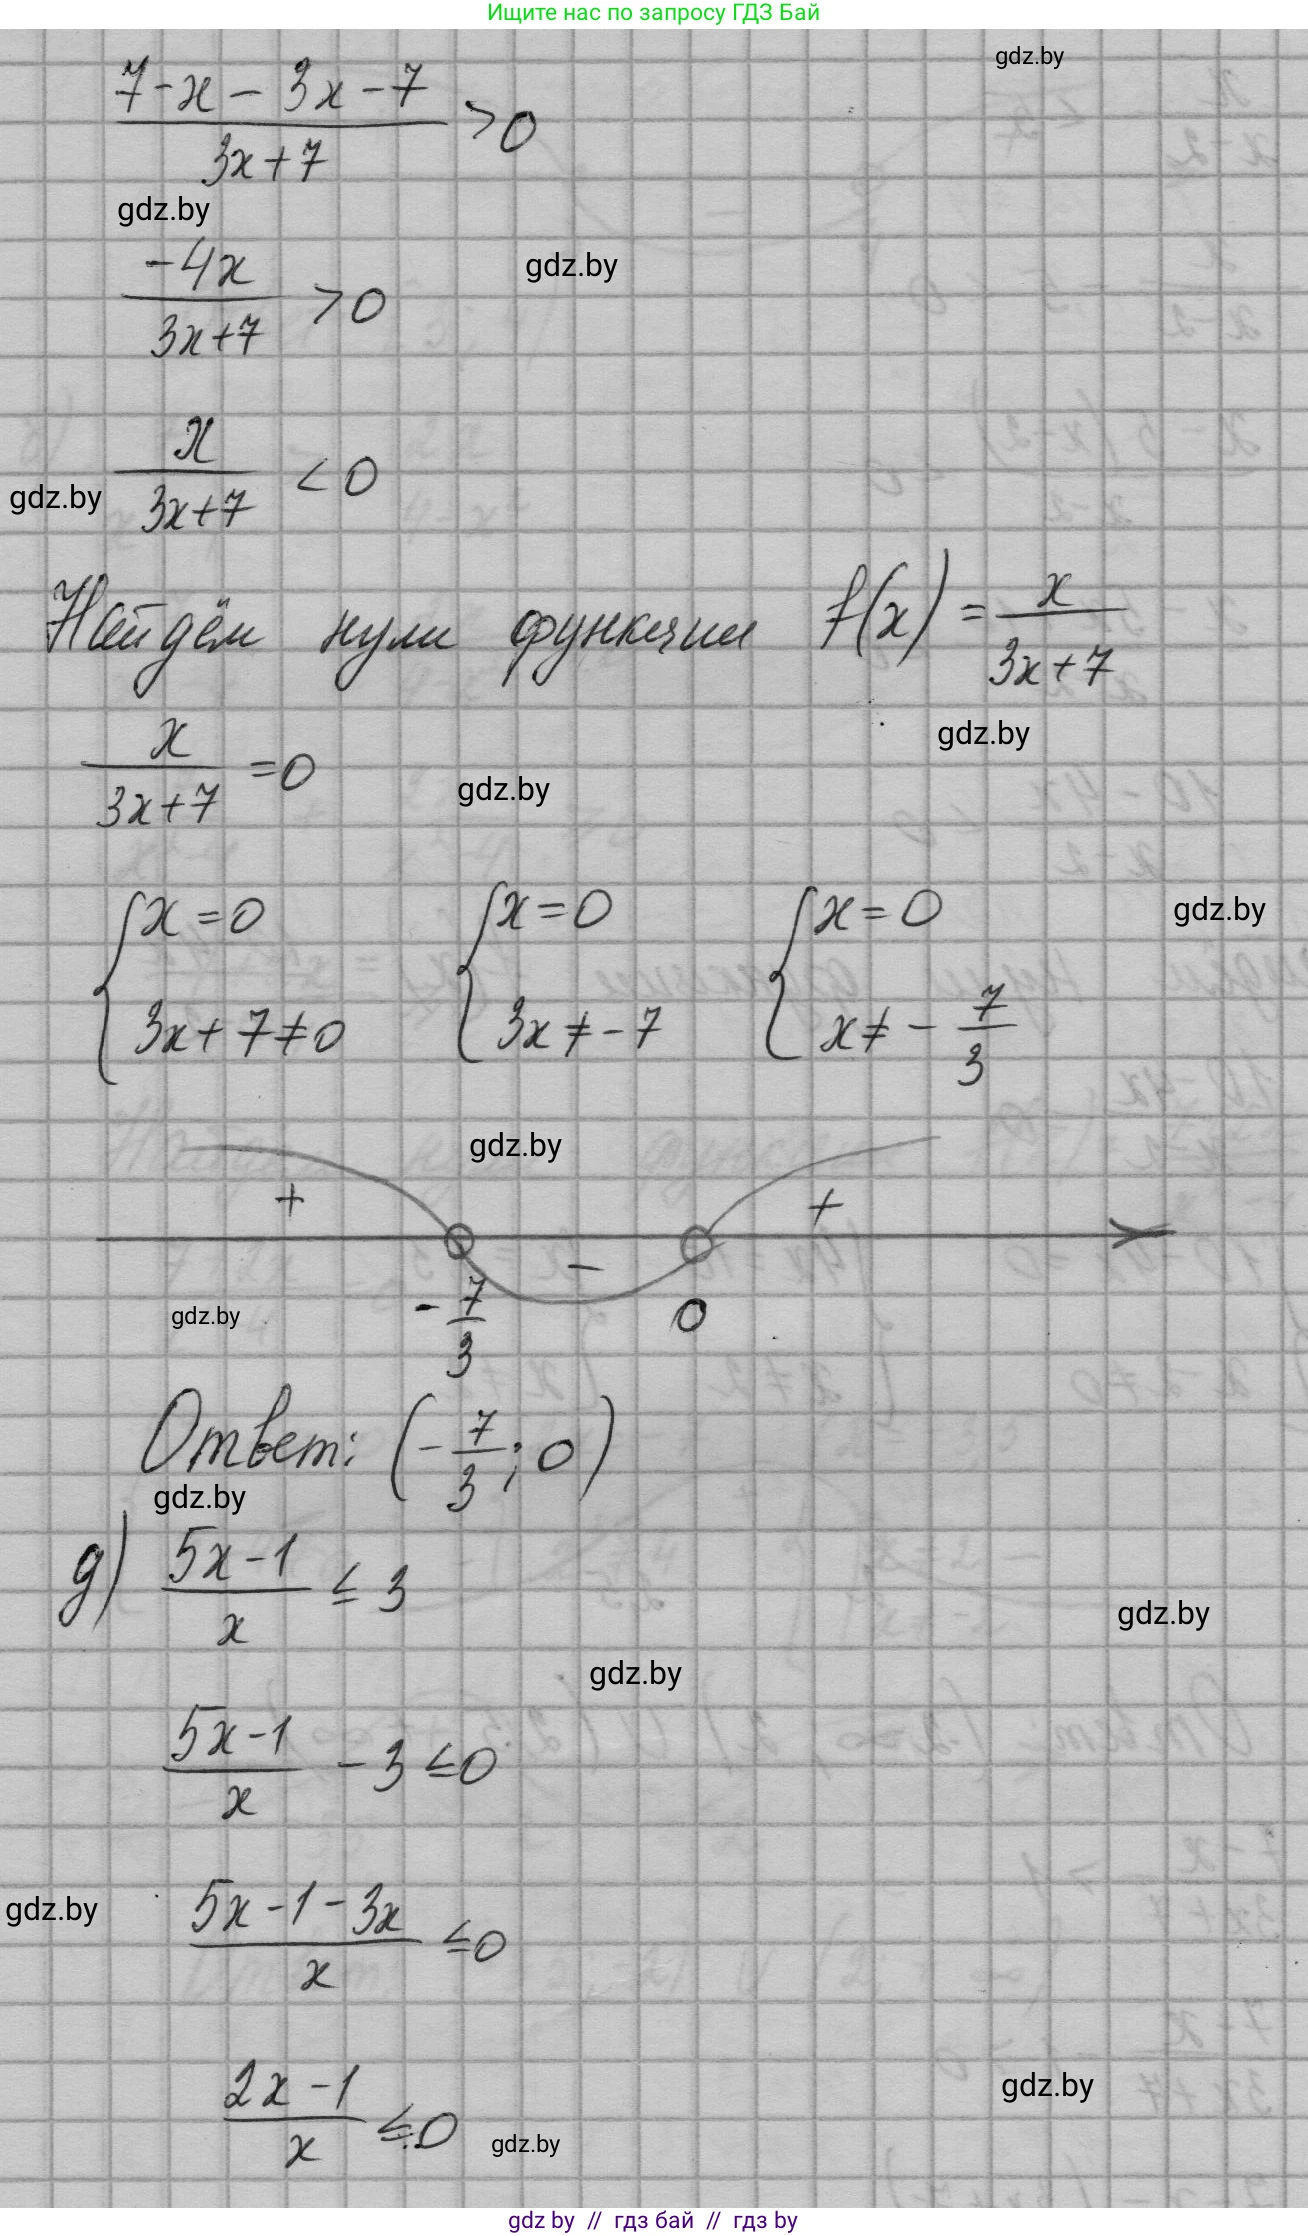 Ищите нас по запросу ГДЗ Бай
gdz.by
(7-x-3x-7)/(3x+7) >0
gdz.by
gdz.by
(-4x)/(3x+7) >0
x/(3x+7) <0
gdz.by
Найдём нули функции f(x)=x/(3x+7)
gdz.by
x/(3x+7) =0
gdz.by
{x=0 {x=0 {x=0
gdz.by
3x+7≠0 3x≠-7 x≠-7/3
gdz.by
+ - +
-7/3 0
gdz.by
Ответ: (-7/3; 0)
gdz.by
д) (5x-1)/x ≤ 3
gdz.by
gdz.by
(5x-1)/x - 3 ≤0
gdz.by
(5x-1-3x)/x ≤0
gdz.by
(2x-1)/x ≤0
gdz.by
gdz by // гдз бай // гдз by